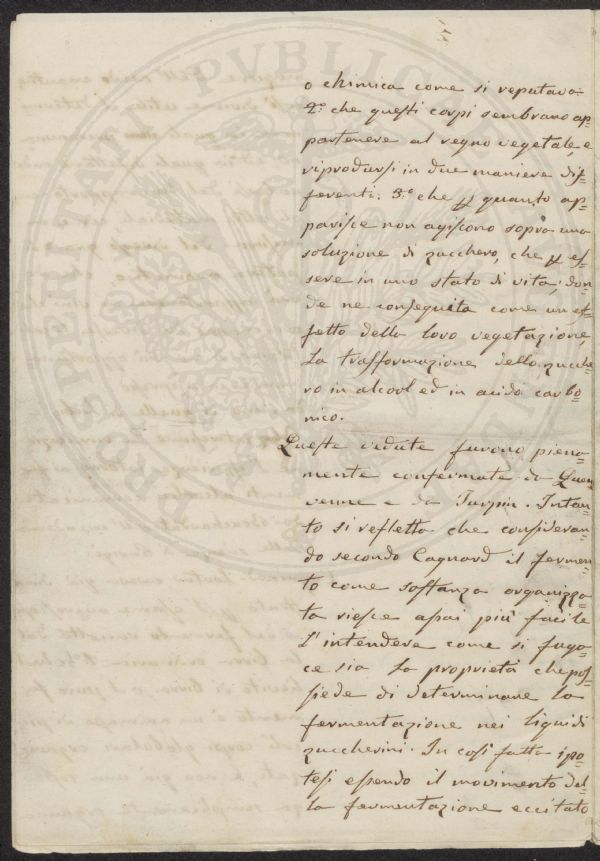 o chimica come si reputava.
2.° che questi corpi sembrano ap-
partenere al regno vegetale, e
riprodursi in due maniere dif-
ferenti. 3.° che p quanto ap-
parisce non agiscono sopra una
soluzione di zucchero, che p es-
sere in uno stato di vita; don-
de ne conseguita come un ef-
fetto della loro vegetazione,
la trasformazione dello zucche-
ro in alcool ed in acido carbo-
nico.
Queste vedute furono piena-
mente confermate da Quen
venne e da Turpin. Intan-
to si rifletta che consideran-
do secondo Cagnard il fermen-
to come sostanza organizza-
ta riesce assai più facile
l'intendere come si fuga-
ce sia la proprietà che pos-
siede di determinare la
fermentazione nei liquidi
zuccherini. In così fatta ipo-
tesi essendo il movimento del-
la fermentazione eccitato
PVBLICAE
PROSPERITATI